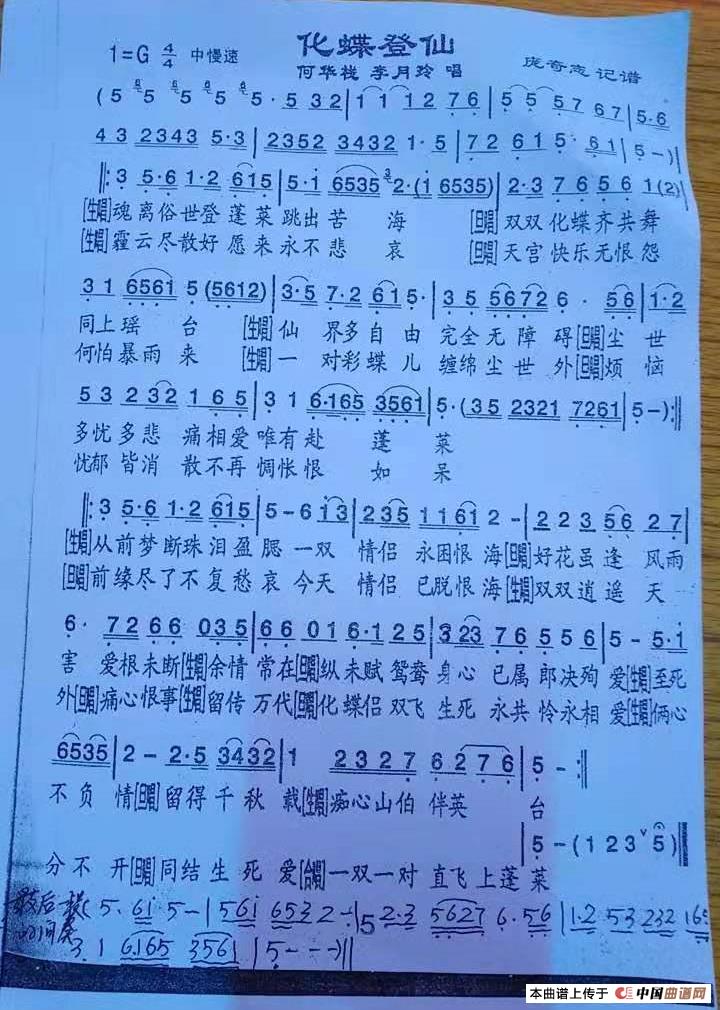 化蝶登仙
1=G 4/4 中慢速
何华栈 李月玲 唱
庞奇志 记谱
( 5 5 5 5 5 · 5 3 2 | 1 1 1 2 7 6 | 5 5 5 7 6 7 | 5 · 6
4 3 2 3 4 3 5 · 3 | 2 3 5 2 3 4 3 2 1 · 5 | 7 2 6 1 5 · 6 1 | 5 - ) |
‖: 3 5 · 6 1 · 2 6 1 5 | 5 · 1 6 5 3 5 2 · ( 1 6 5 3 5 ) | 2 · 3 7 6 5 6 1 ( 2 ) |
[生唱] 魂离俗世登蓬莱跳出苦海 [旦唱] 双双化蝶齐共舞
[生唱] 霾云尽散好愿来永不悲哀 [旦唱] 天宫快乐无恨怨
3 1 6 5 6 1 5 ( 5 6 1 2 ) | 3 · 5 7 · 2 6 1 5 · | 3 5 5 6 7 2 6 · 5 6 | 1 · 2
同上瑶台 [生唱] 仙界多自由完全无障碍 [旦唱] 尘世
何怕暴雨来 [生唱] 一对彩蝶儿缠绵尘世外 [旦唱] 烦恼
5 3 2 3 2 1 6 5 | 3 1 6 · 1 6 5 3 5 6 1 | 5 · ( 3 5 2 3 2 1 7 2 6 1 | 5 - ) :‖
多忧多悲痛相爱唯有赴蓬莱
忧郁皆消散不再惆怅恨如呆
‖: 3 5 · 6 1 · 2 6 1 5 | 5 - 6 1 3 | 2 3 5 1 1 6 1 2 - | 2 2 3 5 6 2 7 |
[生唱] 从前梦断珠泪盈腮一双情侣永困恨海 [旦唱] 好花虽逢风雨
[旦唱] 前缘尽了不复愁哀今天情侣已脱恨海 [生唱] 双双逍遥天
6 · 7 2 6 6 0 3 5 | 6 6 0 1 6 · 1 2 5 | 3 2 3 7 6 5 5 6 | 5 - 5 · 1
害爱根未断 [生唱] 余情常在 [旦唱] 纵未赋鸳鸯身心已属郎决殉爱 [生唱] 至死
外 [旦唱] 痛心恨事 [生唱] 留传万代 [旦唱] 化蝶侣双飞生死永共怜永相爱 [生唱] 俩心
6 5 3 5 | 2 - 2 · 5 3 4 3 2 | 1 2 3 2 7 6 2 7 6 | 5 - :‖
不负情 [旦唱] 留得千秋载 [生唱] 痴心山伯伴英台
| 5 - ( 1 2 3 ˅ 5 ) ‖
分不开 [旦唱] 同结生死爱 [合唱] 一双一对直飞上蓬莱
5 · 6 1 5 - | 5 6 1 6 5 3 2 - | 5 2 · 3 5 6 2 7 6 · 5 6 | 1 · 2 5 3 2 3 2 1 6 5
3 · 1 6 · 1 6 5 3 5 6 1 | 5 - - - ) ‖
本曲谱上传于 中国曲谱网